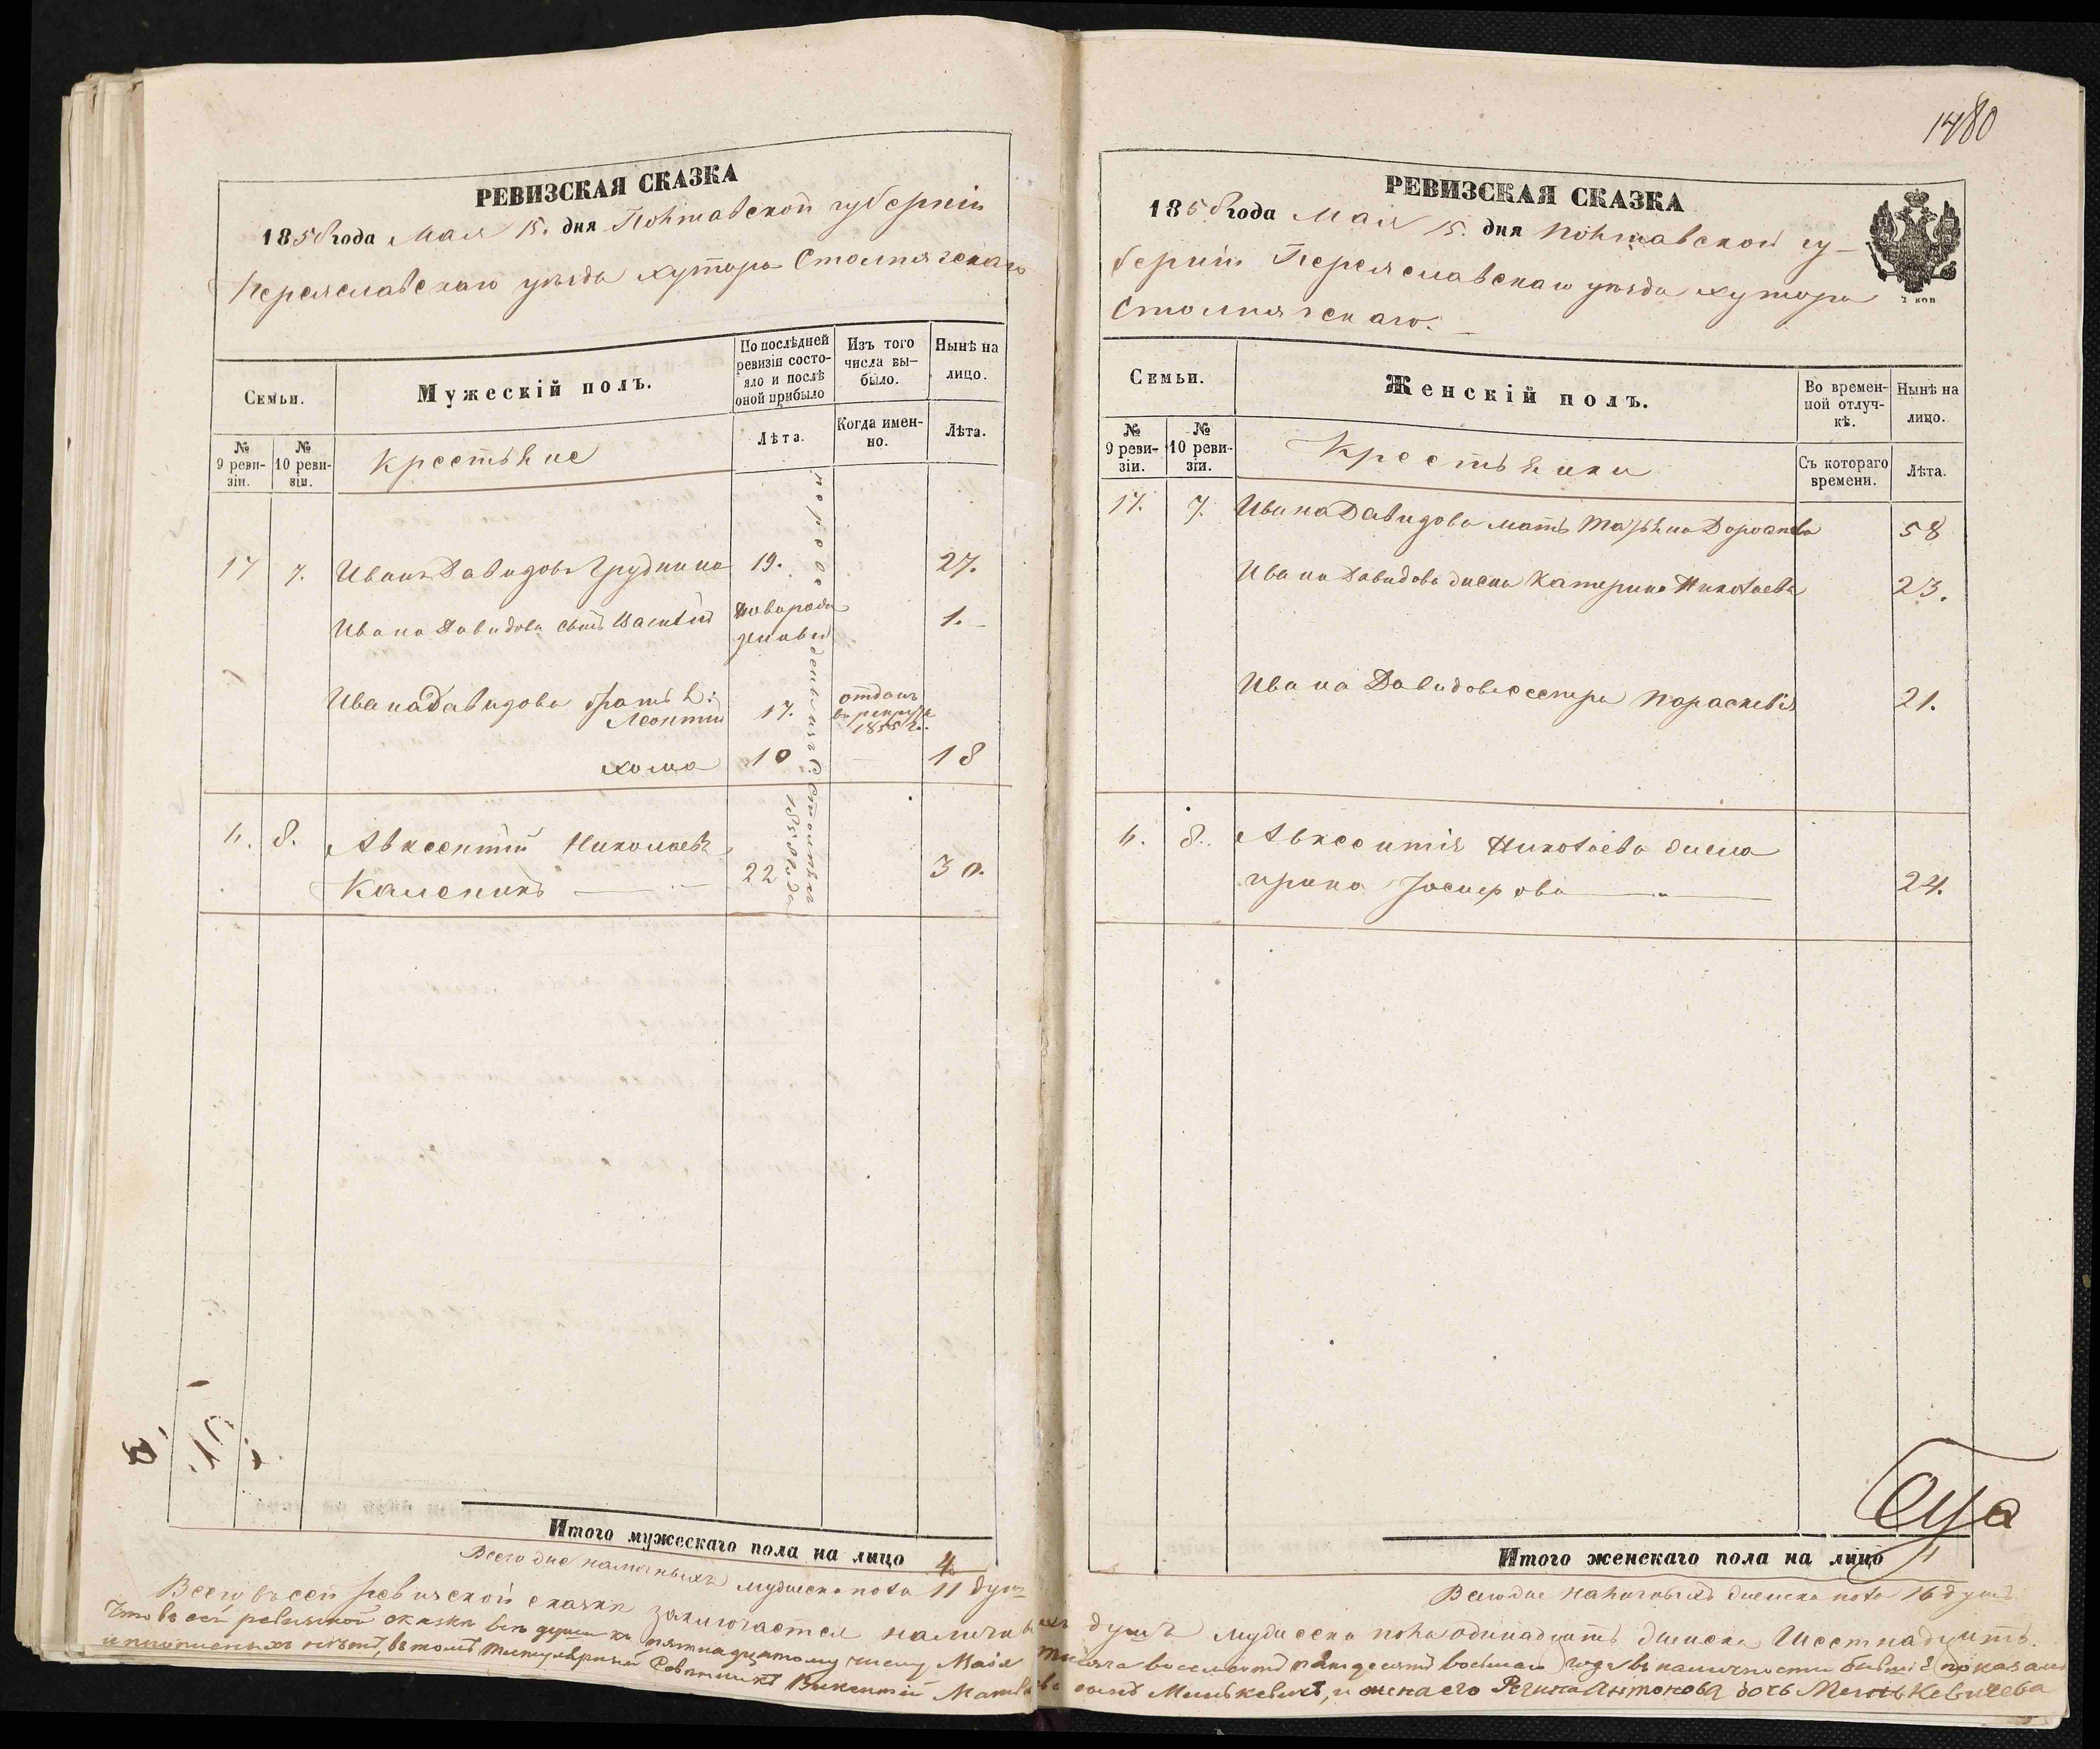 РЕВИЗСКАЯ СКАЗКА
1858 года Мая 15. дня Полтавской губернiи
Переяславскаго уѣзда хутора Столпягскаго
Семьи.
Мужескiй полъ.
По послѣдней ревизiи состояло и послѣ оной прибыло
Изъ того числа выбыло.
Нынѣ на лицо.
№ 9 ревизiи.
№ 10 ревизiи.
Крестьяне
Лѣта.
Когда именно.
Лѣта.
17 7. Иванъ Давидовъ Груднина 19. 27.
Ивана Давидова сынъ Василiй новорожденный 1.
Ивана Давидова братья:
Леонтiй 17. отданъ въ рекруты 1855 г.
Хома 10 18
8. Авксентiй Николаевъ
Каленикъ 22 30.
Итого мужескаго пола на лицо 4
Всего же наличныхъ мужеска пола 11 душъ
1480
РЕВИЗСКАЯ СКАЗКА
1858 года Мая 15. дня Полтавской гу-
бернiи Переяславскаго уѣзда хутора
Столпягскаго.
2 коп
Семьи.
Женскiй полъ.
Во временной отлучкѣ.
Нынѣ на лицо.
№ 9 ревизiи.
№ 10 ревизiи.
Крестьянки
Съ котораго времени.
Лѣта.
17. 7. Ивана Давидова мать Татьяна 58
Ивана Давидова жена Катерина Николаева 23.
Ивана Давидова сестра Параскевiя 21.
8. Авксентiя Николаева жена
Ирина 24.
Итого женскаго пола на лицо 4
Всего же наличныхъ женска пола 16 душъ
Всего въ сей ревизской сказкѣ заключается наличныхъ душъ мужеска пола одинадцать женска Шестнадцать.
Что въ сей ревизской сказкѣ всѣ души къ пятнадцатому числу Маiя тысяча восемсотъ пятдесятъ восьмаго года въ наличности бывшiе показаны
и прописныхъ нѣтъ, въ томъ Титулярный Совѣтникъ Викентiй Матвѣевъ сынъ Минькевичъ, и жена его Антонова дочь Менькевичева